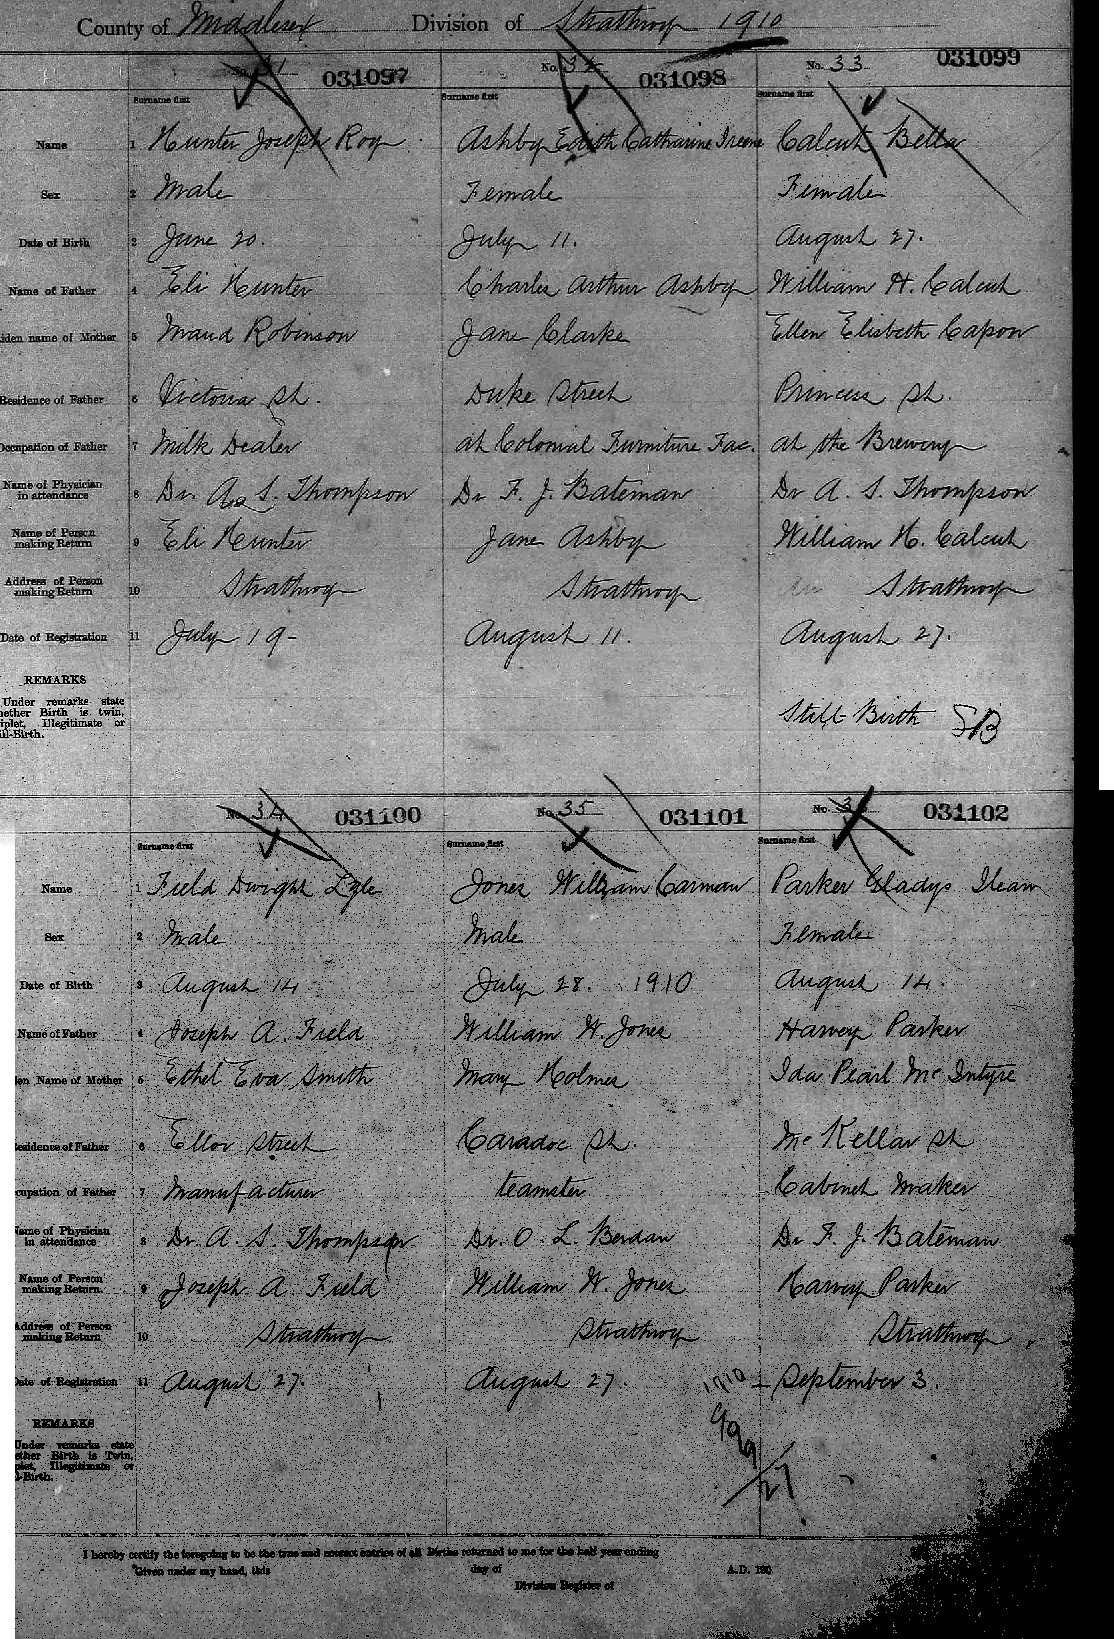 County of Middlesex Division of Strathroy 1910
No. 31 031097 No. 32 031098 No. 33 031099
Surname first Surname first Surname first
Name 1 Hunter Joseph Roy Ashby Edith Catharine Ireene Calcut Bella
Sex 2 Male Female Female
Date of Birth 3 June 20. July 11. August 27.
Name of Father 4 Eli Hunter Charles Arthur Ashby William H. Calcut
iden name of Mother 5 Maud Robinson Jane Clarke Ellen Elisbeth Capon
Residence of Father 6 Victoria St. Duke Street Princess St.
Occupation of Father 7 Milk Dealer at Colonial Furniture Fac. at the Brewery
Name of Physician
in attendance 8 Dr. A. S. Thompson Dr F. J. Bateman Dr A. S. Thompson
Name of Person
making Return 9 Eli Hunter Jane Ashby William H. Calcut
Address of Person
making Return 10 Strathroy Strathroy Strathroy
Date of Registration 11 July 19 - August 11. August 27.
REMARKS
Under remarks state
hether Birth is twin,
iplet, Illegitimate or
ill-Birth.
Still Birth SB
No. 34 031100 No. 35 031101 No. 36 031102
Surname first Surname first Surname first
Name 1 Field Dwight Lyle Jones William Carman Parker Gladys Ilean
Sex 2 Male Male Female
Date of Birth 3 August 14 July 28. 1910 August 14.
Name of Father 4 Joseph A. Field William W. Jones Harvey Parker
den Name of Mother 5 Ethel Eva Smith Mary Holmes Ida Pearl McIntyre
esidence of Father 6 Ellor Street Caradoc St. McKellar St
cupation of Father 7 Manufacturer teamster Cabinet Maker
Name of Physician
in attendance 8 Dr. A. S. Thompson Dr. O. L. Berdan Dr F. J. Bateman
Name of Person
making Return. 9 Joseph A. Field William W. Jones Harvey Parker
Address of Person
making Return 10 Strathroy Strathroy Strathroy
Date of Registration 11 August 27. August 27. September 3.
1910
999/27
REMARKS
Under remarks state
ether Birth is Twin,
plet, Illegitimate or
l-Birth.
I hereby certify the foregoing to be the true and correct entries of all Births returned to me for the half year ending
Given under my hand, this day of A.D. 190
Division Register of